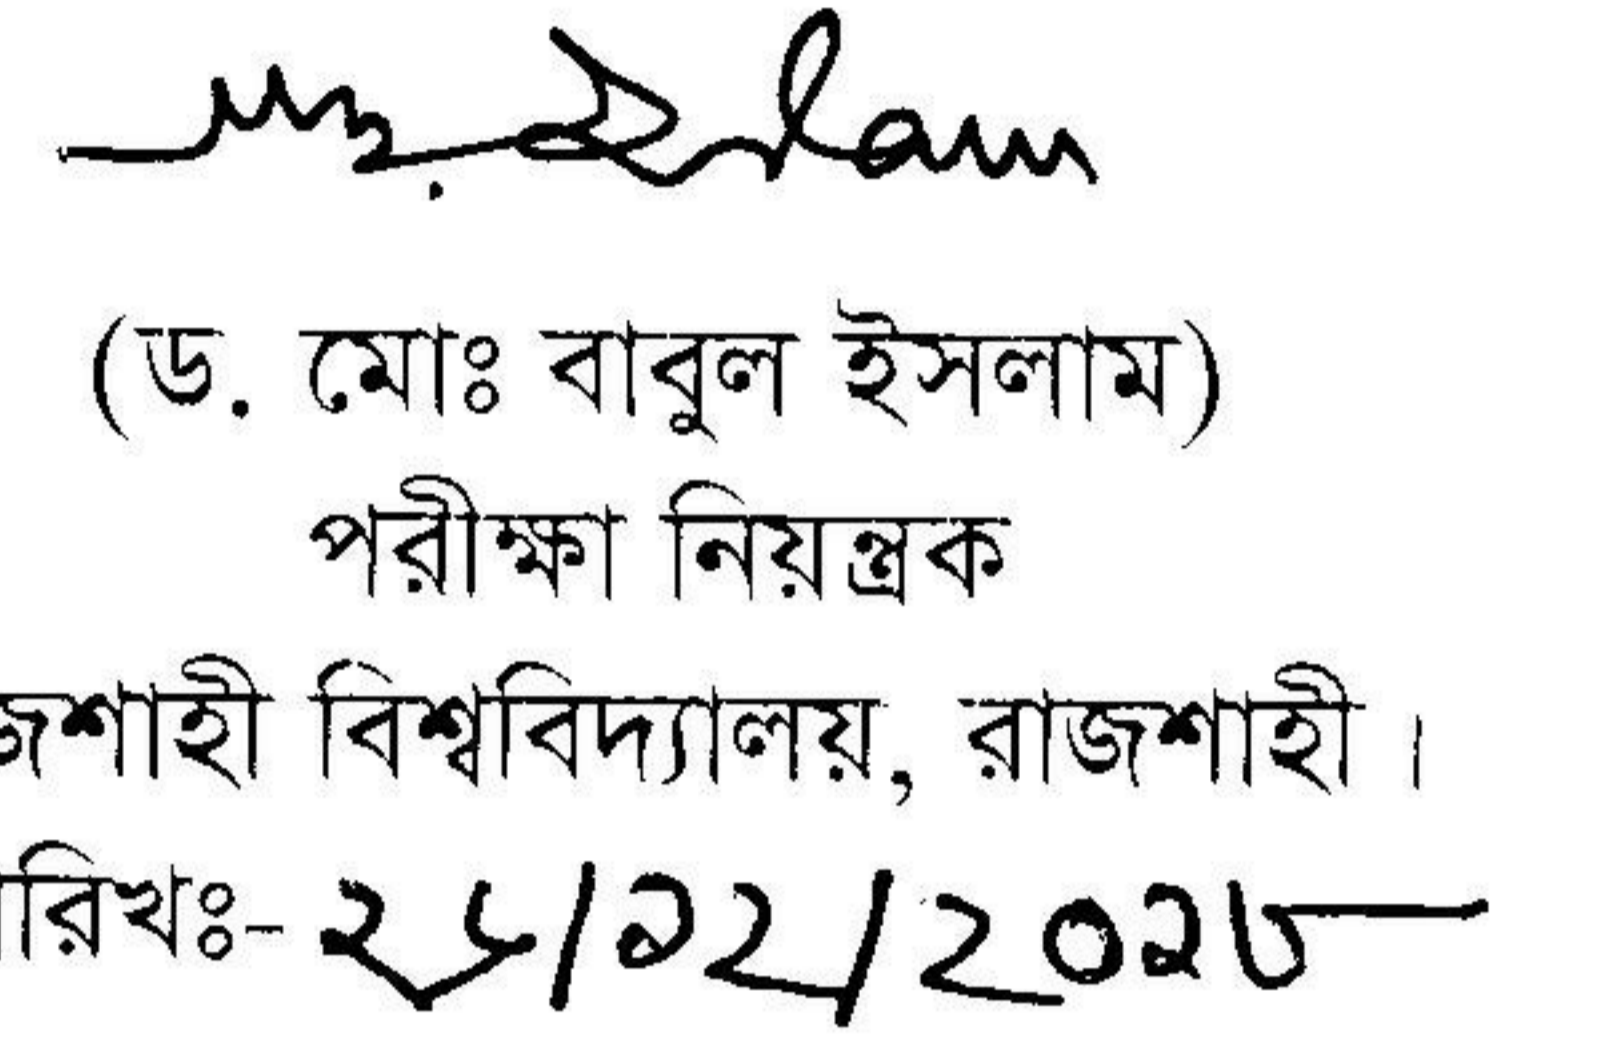 (ড. মোঃ বাবুল ইসলাম)
পরীক্ষা নিয়ন্ত্রক
জশাহী বিশ্ববিদ্যালয়, রাজশাহী।
রিখঃ-